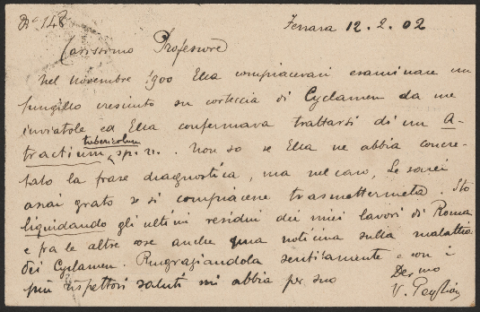 No 148
Ferrara 12. 2. 02
Carissimo Professore
Nel novembre 1900 Ella compiacevasi esaminare un
funghillo cresciuto su corteccia di Cyclamen da me
inviatole ed Ella confermava trattarsi di un A-
tubericolum
tractium sp. n. Non so se Ella ne abbia concre-
tato la frase diagnostica, ma nel caso, Le sarei
assai grato se si compiacesse trasmettermela. Sto
liquidando gli ultimi residui dei miei lavori di Roma
e fra le altre cose anche una noticina sulla malattia
dei Cyclamen. Ringraziandola sentitamente e con i
più rispettosi saluti mi abbia per suo
Dev.mo
V. Peglion